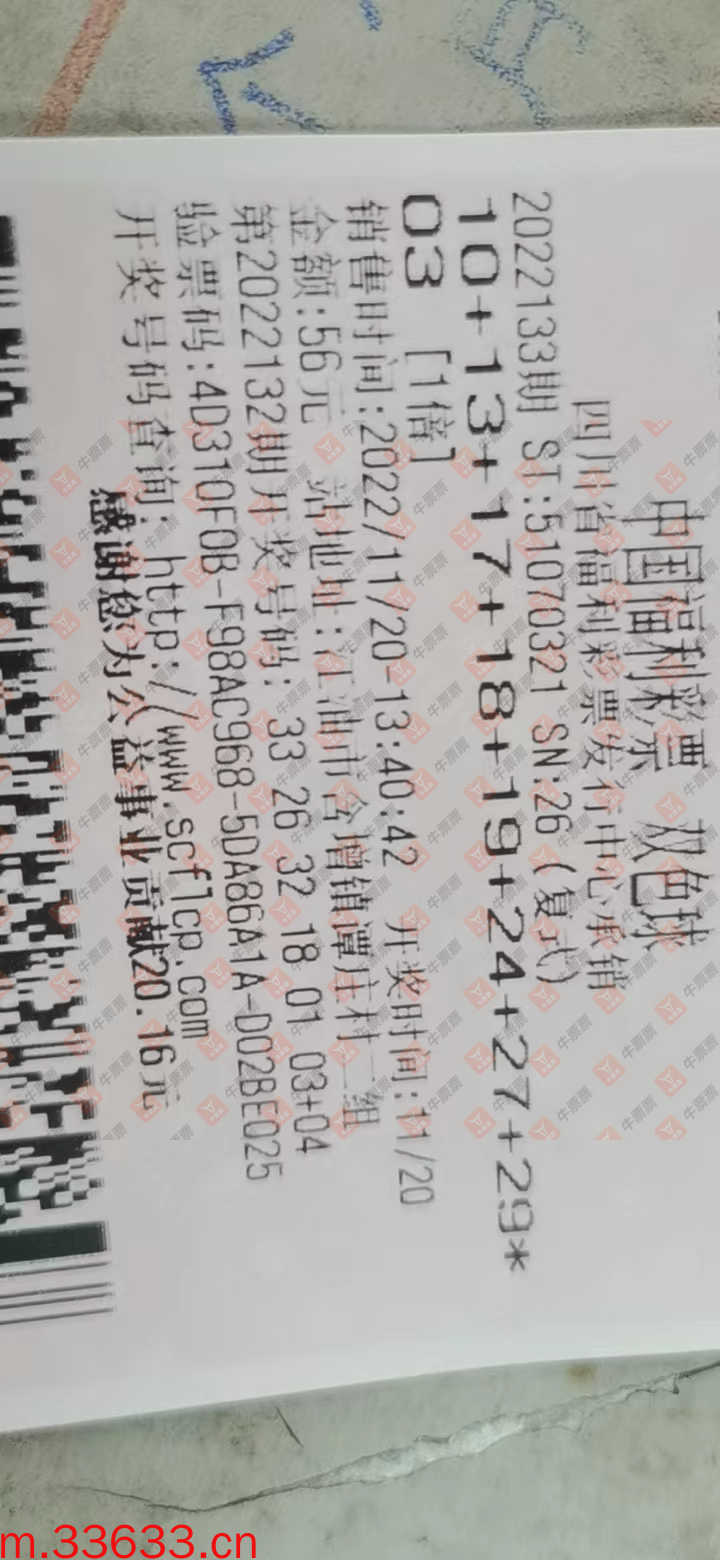 中国福利彩票 双色球
四川省福利彩票发行中心承销
2022133期 ST:51070321 SN:26 (复式)
10+13+17+18+19+24+27+29*
03 [1倍]
销售时间:2022/11/20-13:40:42 开奖时间:11/20
金额:56元 站地址:江油市含增镇谭庄村二组
第2022132期开奖号码: 33 26 32 18 01 03+04
验票码:4D310F0B-F98AC968-5DA86A1A-D02BE025
开奖号码查询: http://www.scflcp.com
感谢您为公益事业贡献20.16元
牛票票
m.33633.cn